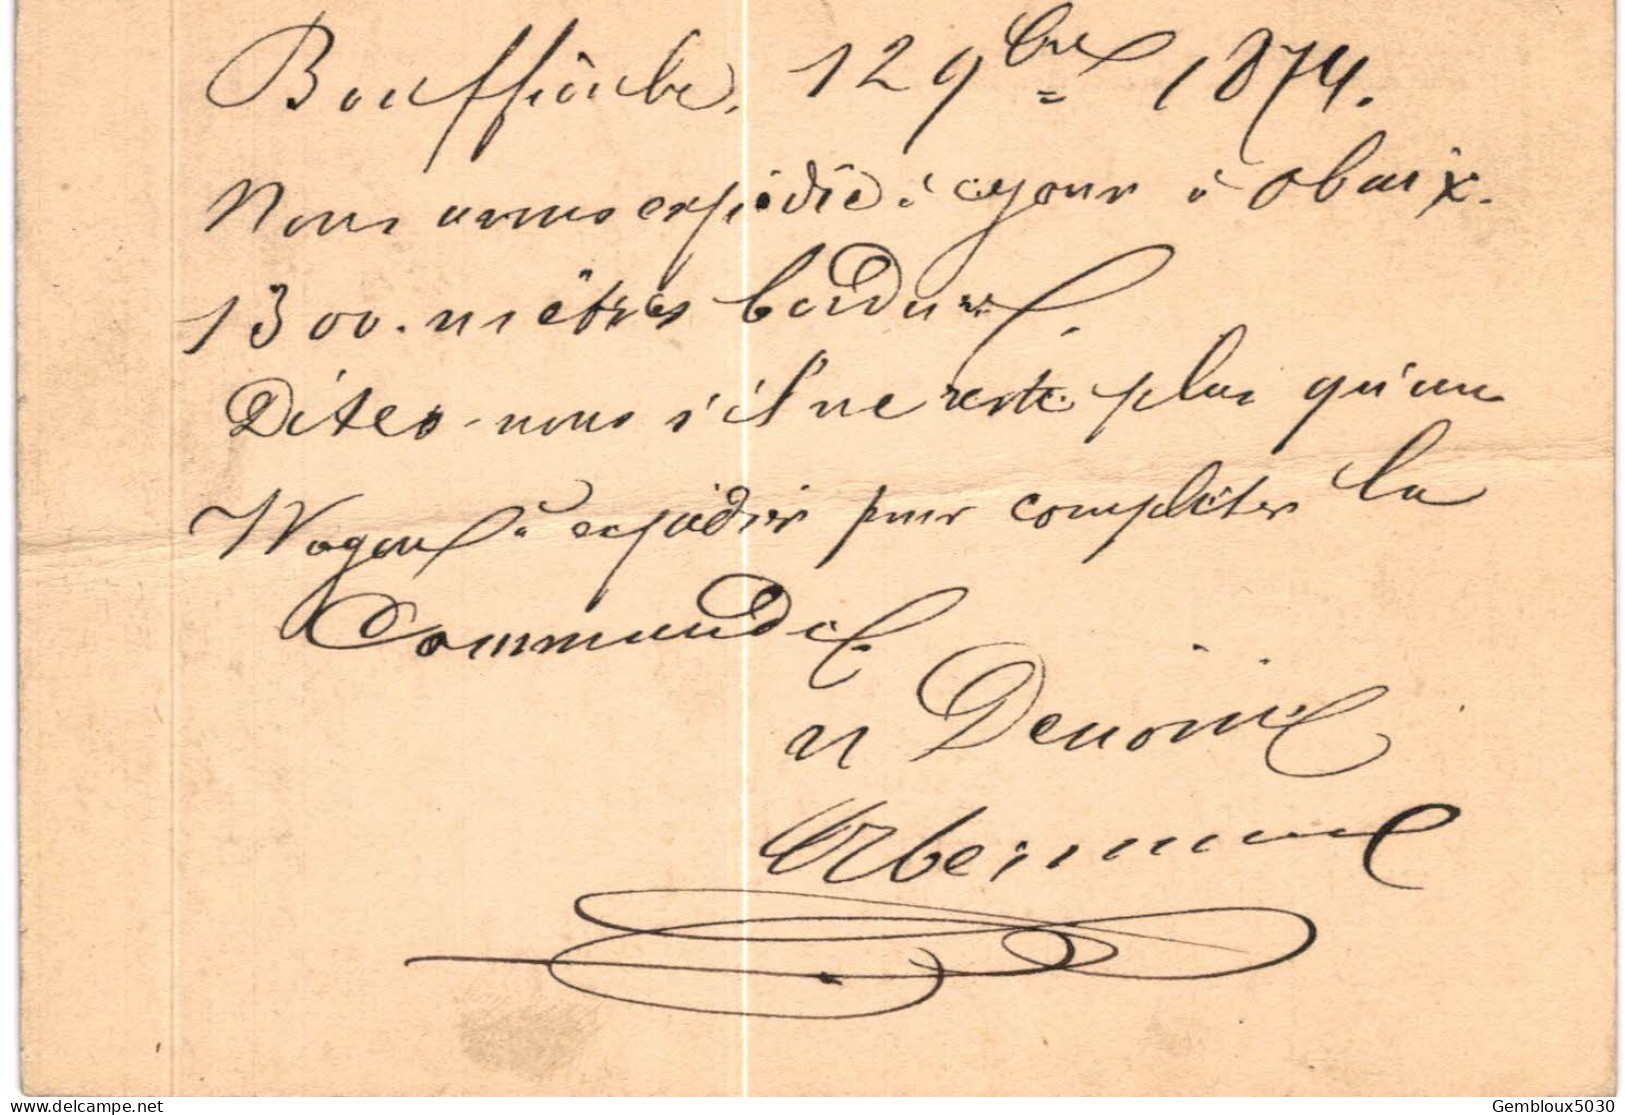 Bouffioulx, 12 9bre 1874.
Nous avons expédié à ce jour à Obaix.
1300 mètres bordure.
Dites-nous s'il ne reste plus qu'un
Wagon à expédier pour compléter la
Commande.
Gembloux5030